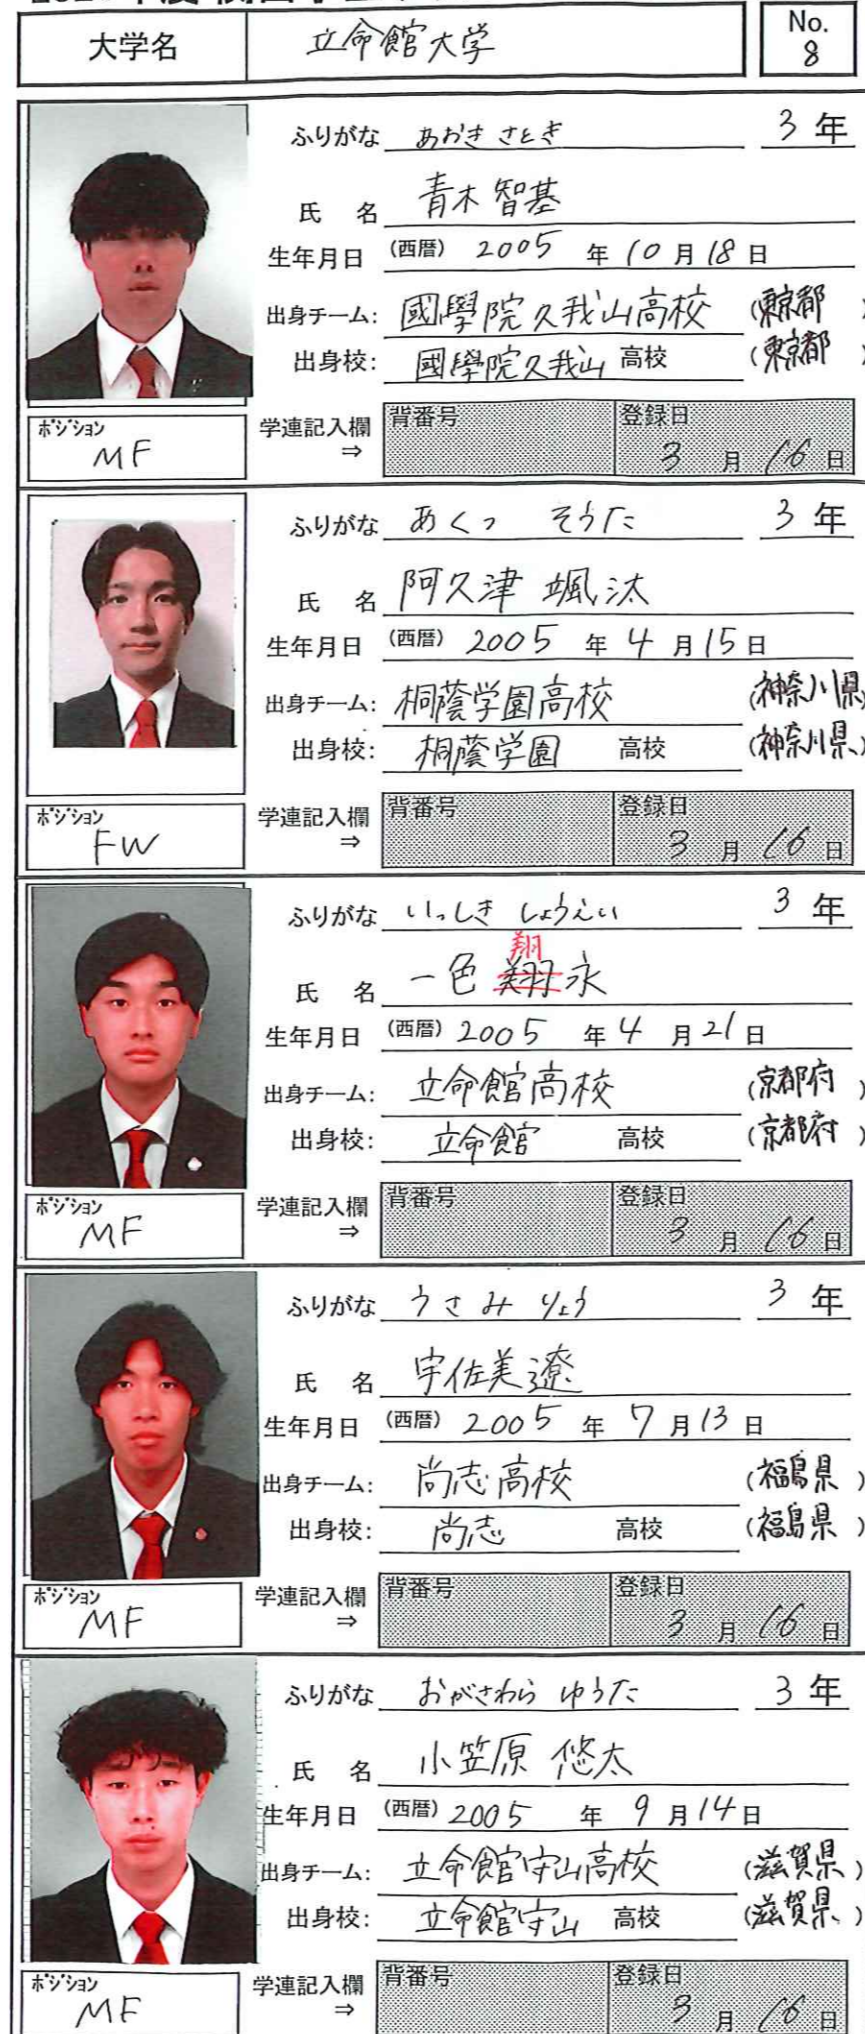 大学名 立命館大学 No. 8
ふりがな あおき さとき 3 年
氏 名 青木 智基
生年月日 (西暦) 2005 年 10 月 18 日
出身チーム: 國學院久我山高校 (東京都 )
出身校: 國學院久我山 高校 (東京都 )
ポジション MF 学連記入欄 ⇒ 背番号 登録日 3 月 16 日
ふりがな あくつ そうた 3 年
氏 名 阿久津 颯汰
生年月日 (西暦) 2005 年 4 月 15 日
出身チーム: 桐蔭学園高校 (神奈川県)
出身校: 桐蔭学園 高校 (神奈川県)
ポジション FW 学連記入欄 ⇒ 背番号 登録日 3 月 16 日
ふりがな いっしき しょうえい 3 年
翔
氏 名 一色 翔永
生年月日 (西暦) 2005 年 4 月 21 日
出身チーム: 立命館高校 (京都府 )
出身校: 立命館 高校 (京都府 )
ポジション MF 学連記入欄 ⇒ 背番号 登録日 3 月 16 日
ふりがな うさみ りょう 3 年
氏 名 宇佐美 遼
生年月日 (西暦) 2005 年 7 月 13 日
出身チーム: 尚志高校 (福島県 )
出身校: 尚志 高校 (福島県 )
ポジション MF 学連記入欄 ⇒ 背番号 登録日 3 月 16 日
ふりがな おがさわら ゆうた 3 年
氏 名 小笠原 悠太
生年月日 (西暦) 2005 年 9 月 14 日
出身チーム: 立命館守山高校 (滋賀県 )
出身校: 立命館守山 高校 (滋賀県 )
ポジション MF 学連記入欄 ⇒ 背番号 登録日 3 月 16 日